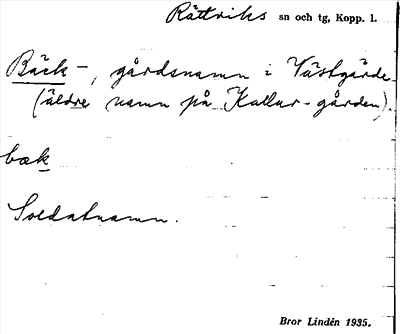 Rättviks sn och tg, Kopp. l.
Bäck-, gårdsnamn i Västgärde
(äldre namn på Kallur-gården).
bæk
Soldatnamn.
Bror Lindén 1935.